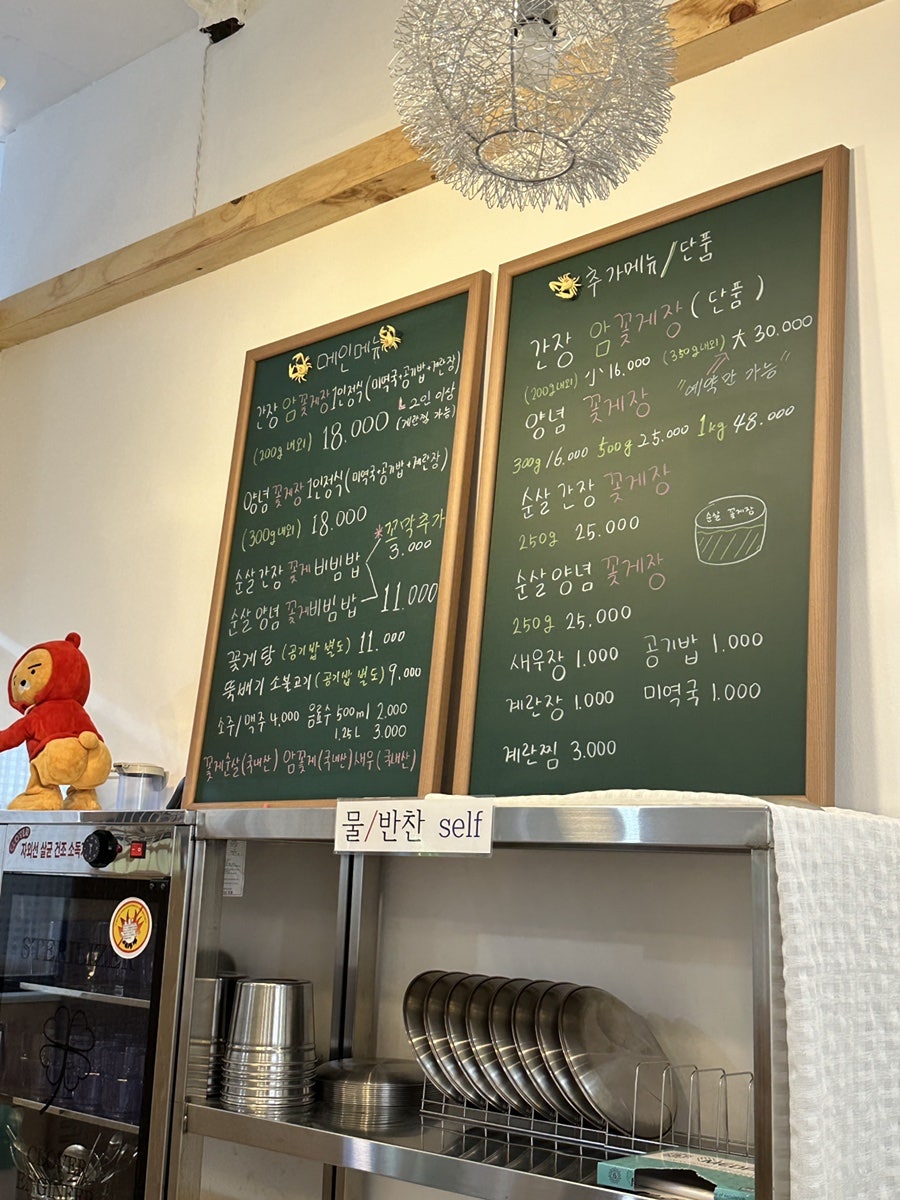 메인메뉴
간장 암꽃게장 1인정식 (미역국+공기밥+계란장)
(200g 내외) 18.000 2인 이상 (계란찜 가능)
양념 꽃게장 1인정식 (미역국+공기밥+계란장)
(300g 내외) 18.000
*꼬막추가
3.000
순살 간장 꽃게 비빔밥
순살 양념 꽃게비빔밥 11.000
꽃게탕 (공기밥 별도) 11.000
뚝배기 소불고기 (공기밥 별도) 9,000
소주/맥주 4,000 음료수 500ml 2.000
1.25L 3.000
꽃게순살(국내산) 암꽃게(국내산) 새우(국내산)
추가메뉴/단품
간장 암꽃게장 (단품)
(200g내외) 小 16.000 (350g내외) 大 30.000
"예약만 가능"
양념 꽃게장
300g 16.000 500g 25.000 1kg 48.000
순살 간장 꽃게장
250g 25.000
순살 꽃게장
순살 양념 꽃게장
250g 25.000
새우장 1.000 공기밥 1.000
계란장 1.000 미역국 1.000
계란찜 3.000
물/반찬 self
자외선 살균 건조 소독
STERILIZER